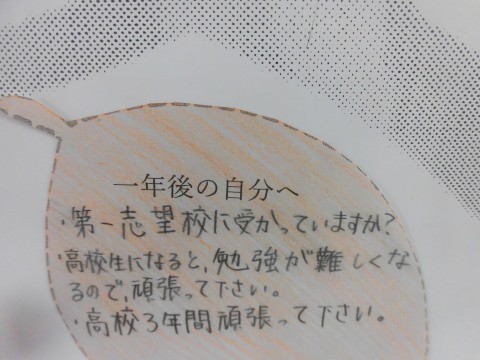 一年後の自分へ
・第一志望校に受かっていますか?
・高校生になると,勉強が難しくな
るので,頑張って下さい。
・高校3年間頑張って下さい。